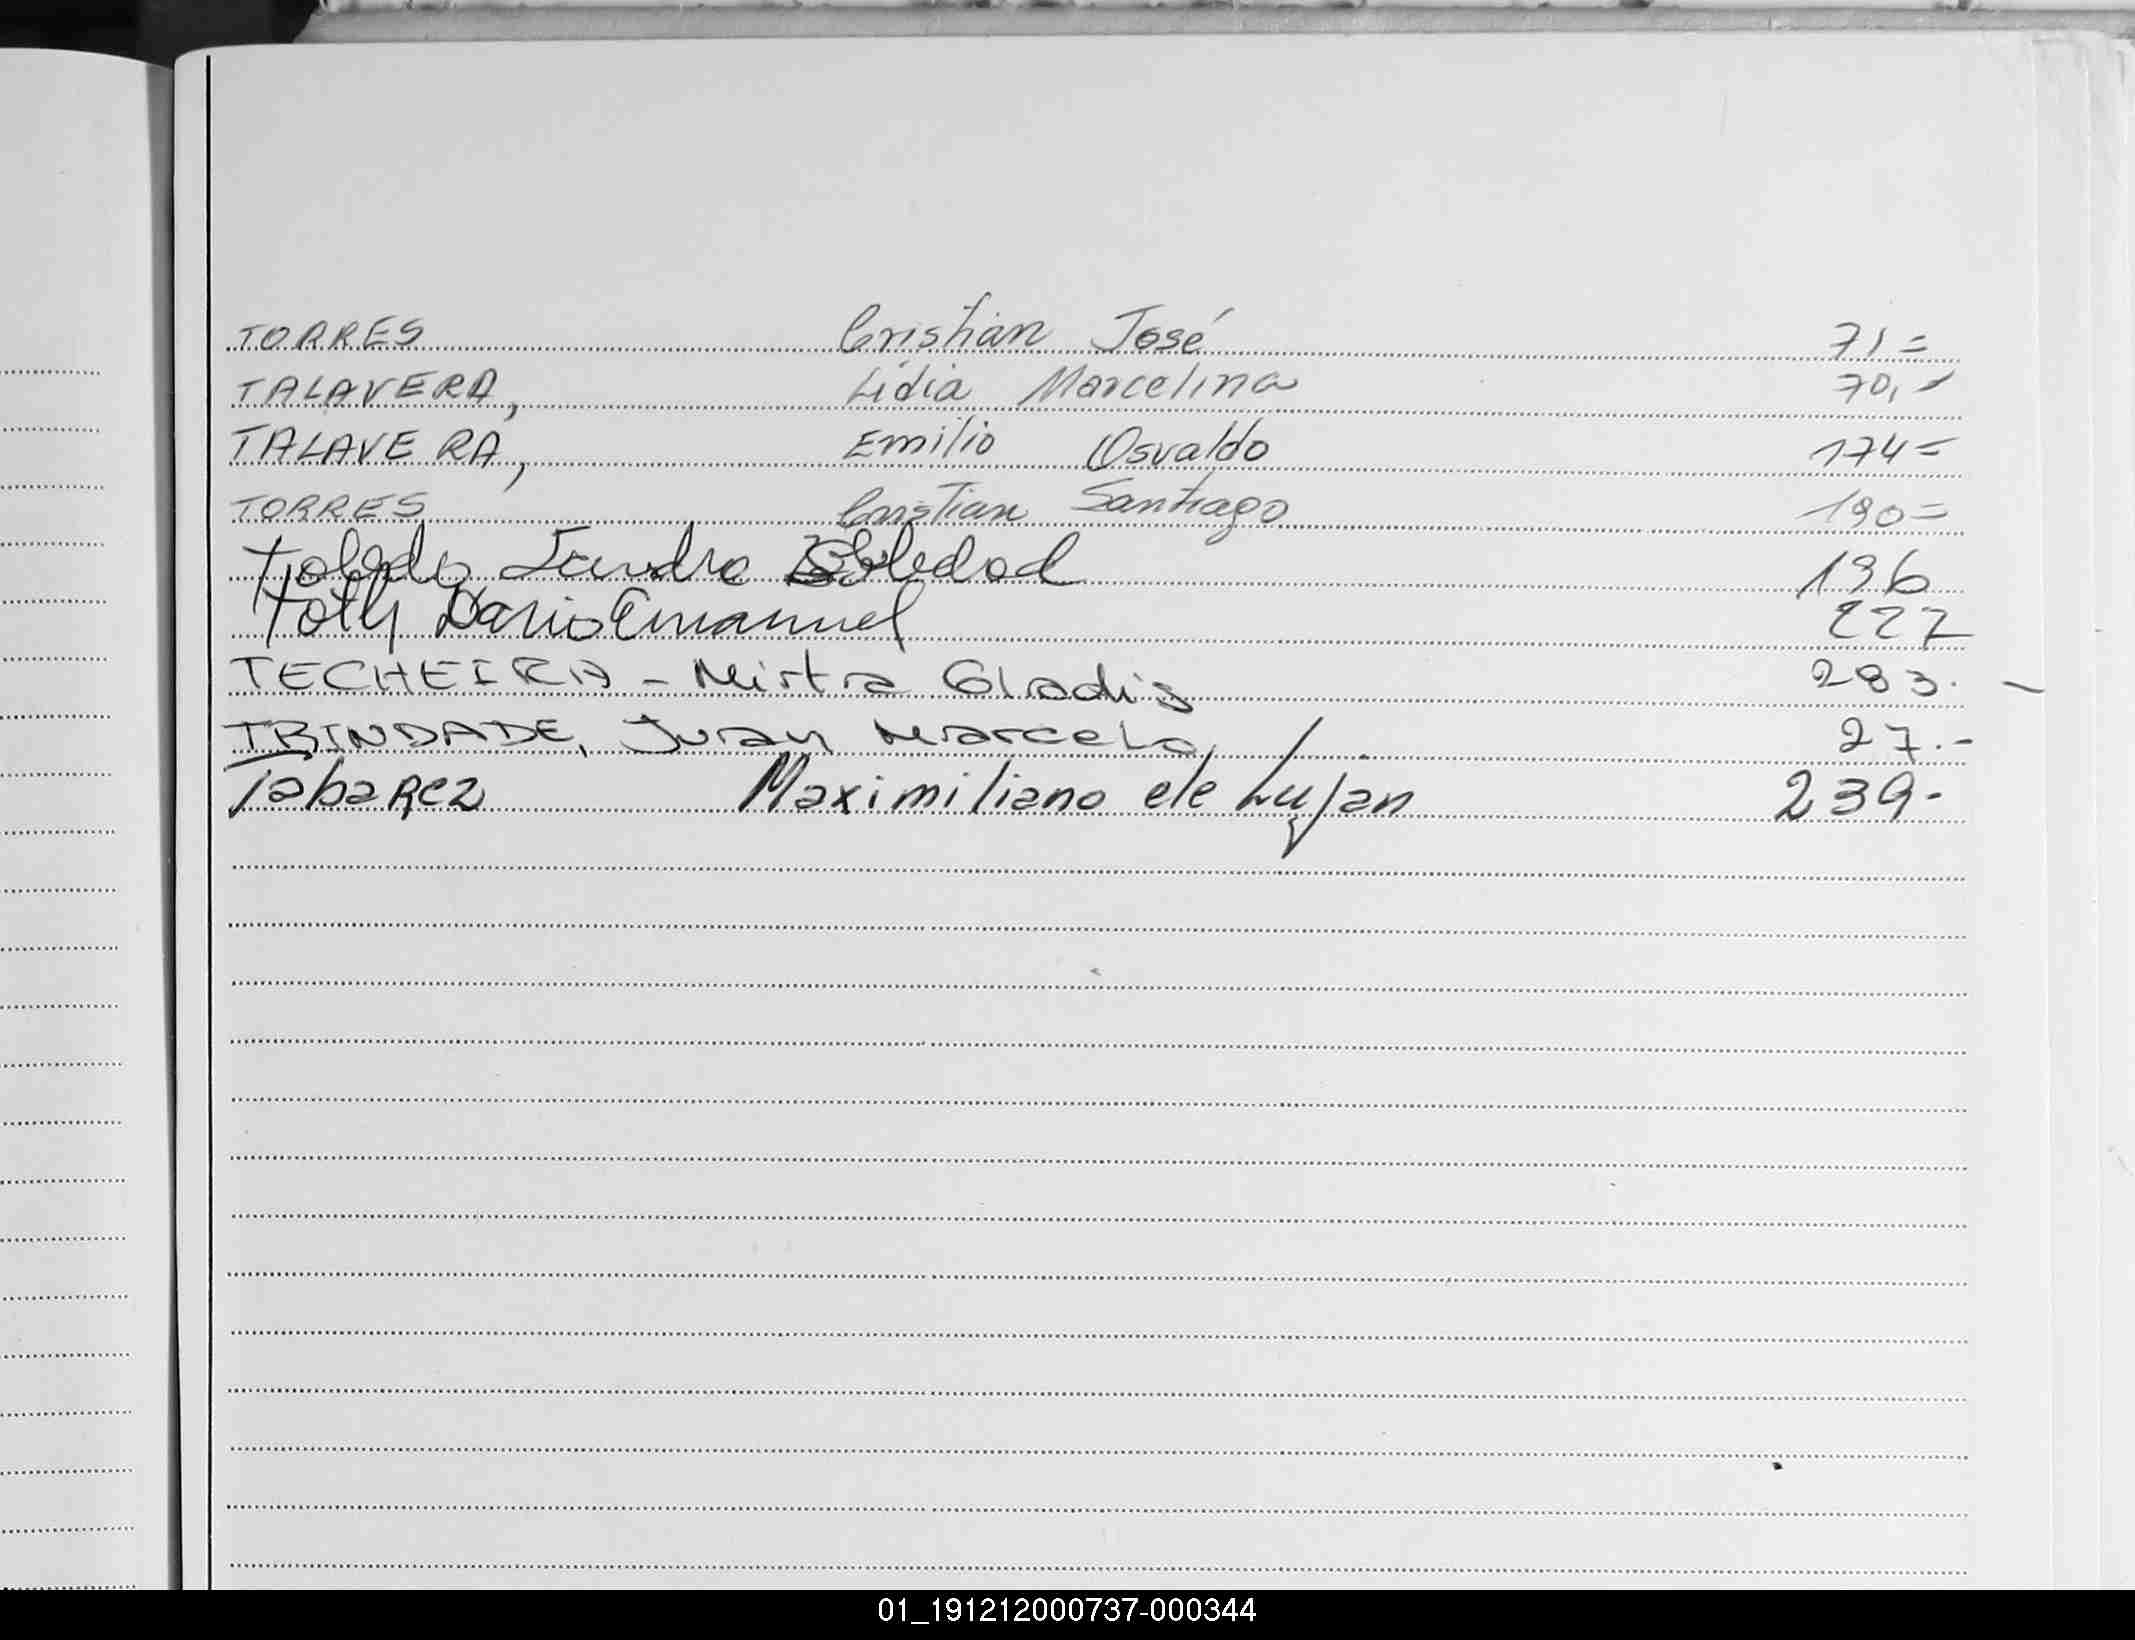 TORRES Cristian José 71=
TALAVERA, Lidia Marcelina 70,-
TALAVERA, Emilio Osvaldo 174=
TORRES Cristian Santiago 190=
Toledo Sandra Soledad 196
Toth Dario Emanuel 227
TECHEIRA - Mirta Gladis 283. -
TRINDADE, Juan Marcelo, 27.-
Tabarez Maximiliano de Luján 239-
01_191212000737-000344